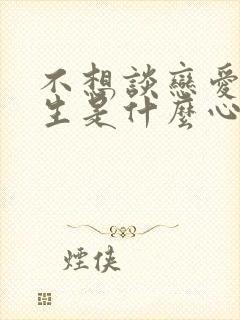 不想談戀愛
生是什麼心
煙俠